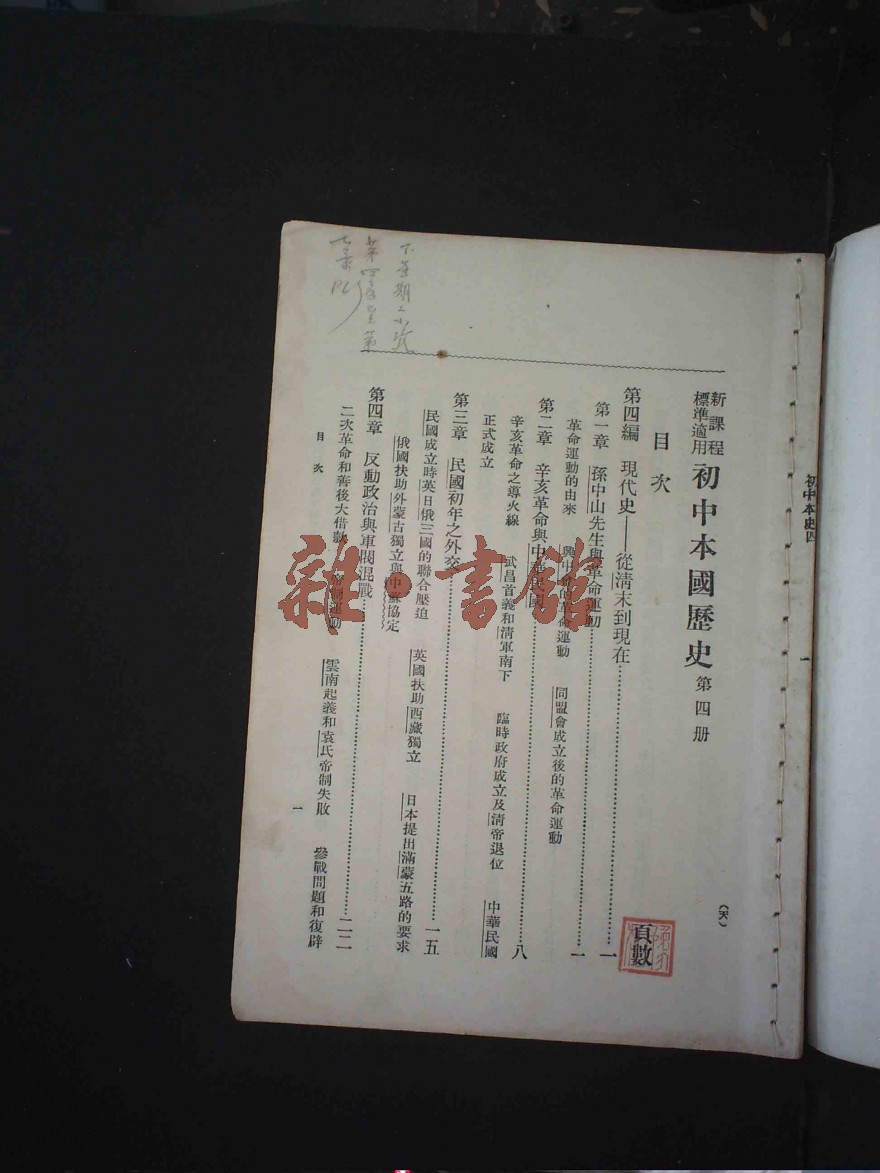 新課程
標準適用
初中本國歷史 第四册
(天)
目次
頁數
第四編 現代史——從清末到現在……一
第一章 孫中山先生與革命運動……一
革命運動的由來 興中會的革命運動 同盟會成立後的革命運動
第二章 辛亥革命與中華民國……八
辛亥革命之導火線 武昌首義和清軍南下 臨時政府成立及清帝退位 中華民國
正式成立
第三章 民國初年之外交……一五
民國成立時英日俄三國的聯合壓迫 英國扶助西藏獨立 日本提出滿蒙五路的要求
俄國扶助外蒙古獨立與中蘇協定
第四章 反動政治與軍閥混戰……二二
二次革命和善後大借款 帝制運動 雲南起義和袁氏帝制失敗 參戰問題和復辟
目次 一
初中本史四 一
下星期二小
雜·書館